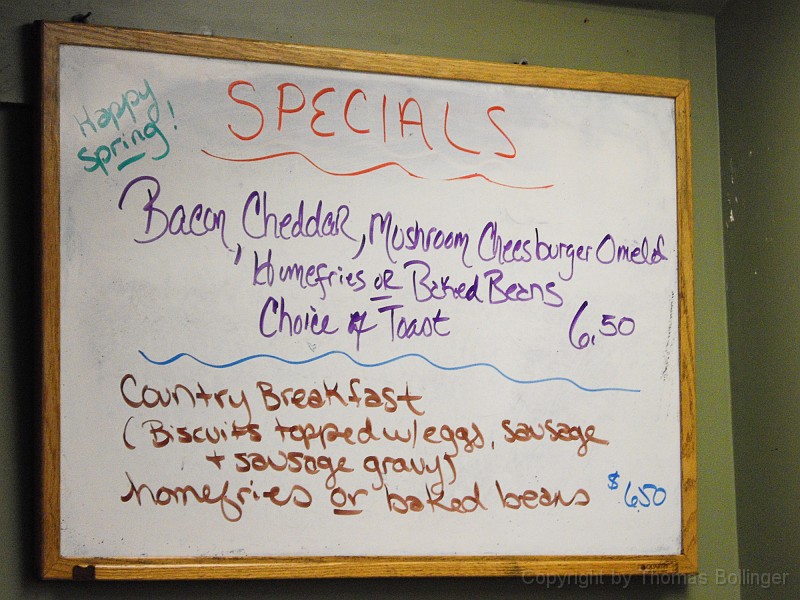 Happy
Spring!
SPECIALS
Bacon, Cheddar, Mushroom Cheesburger Omelet
Homefries or Baked Beans
Choice of Toast 6.50
Country Breakfast
(Biscuits topped w/eggs, sausage
+ sausage gravy)
homefries or baked beans $650
Copyright by Thomas Bollinger